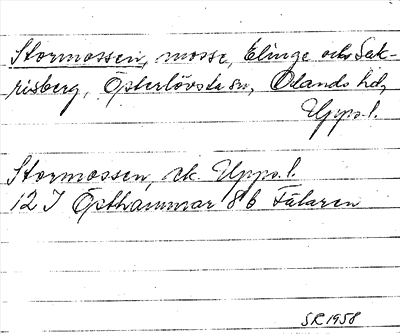 Stormossen, mosse, Elinge och Sak-
risberg, Österlövsta sn, Olands hd,
Upps.l.
Stormossen, ek. Upps.l.
12 I Östhammar 8b Fälaren
SR 1958